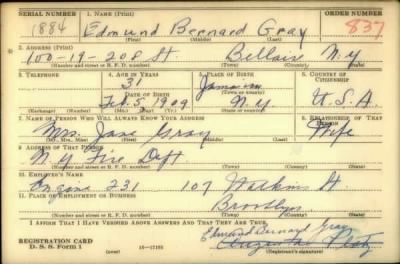 SERIAL NUMBER 1. NAME (Print) ORDER NUMBER
1884 Edmund Bernard Gray 837
(First) (Middle) (Last)
2. ADDRESS (Print)
100-19-208 St. Bellaire N.Y
(Number and street or R. F. D. number) (Town) (County) (State)
3. TELEPHONE 4. AGE IN YEARS 5. PLACE OF BIRTH 6. COUNTRY OF CITIZENSHIP
31 Jamaica
DATE OF BIRTH (Town or county)
Feb. 5 1909 N.Y. U.S.A
(Exchange) (Number) (Mo.) (Day) (Yr.) (State or country)
7. NAME OF PERSON WHO WILL ALWAYS KNOW YOUR ADDRESS 8. RELATIONSHIP OF THAT PERSON
Mrs. Jane Gray Wife
(Mr., Mrs., Miss) (First) (Middle) (Last)
9. ADDRESS OF THAT PERSON
N.Y. Fire Dept
(Number and street or R. F. D. number) (Town) (County) (State)
10. EMPLOYER'S NAME
Engine 231 107 Watkins St.
11. PLACE OF EMPLOYMENT OR BUSINESS
Brooklyn
(Number and street or R. F. D. number) (Town) (County) (State)
I AFFIRM THAT I HAVE VERIFIED ABOVE ANSWERS AND THAT THEY ARE TRUE.
Edmund Bernard Gray
REGISTRATION CARD
D. S. S. Form 1 (over) 16-17105 (Registrant's signature)